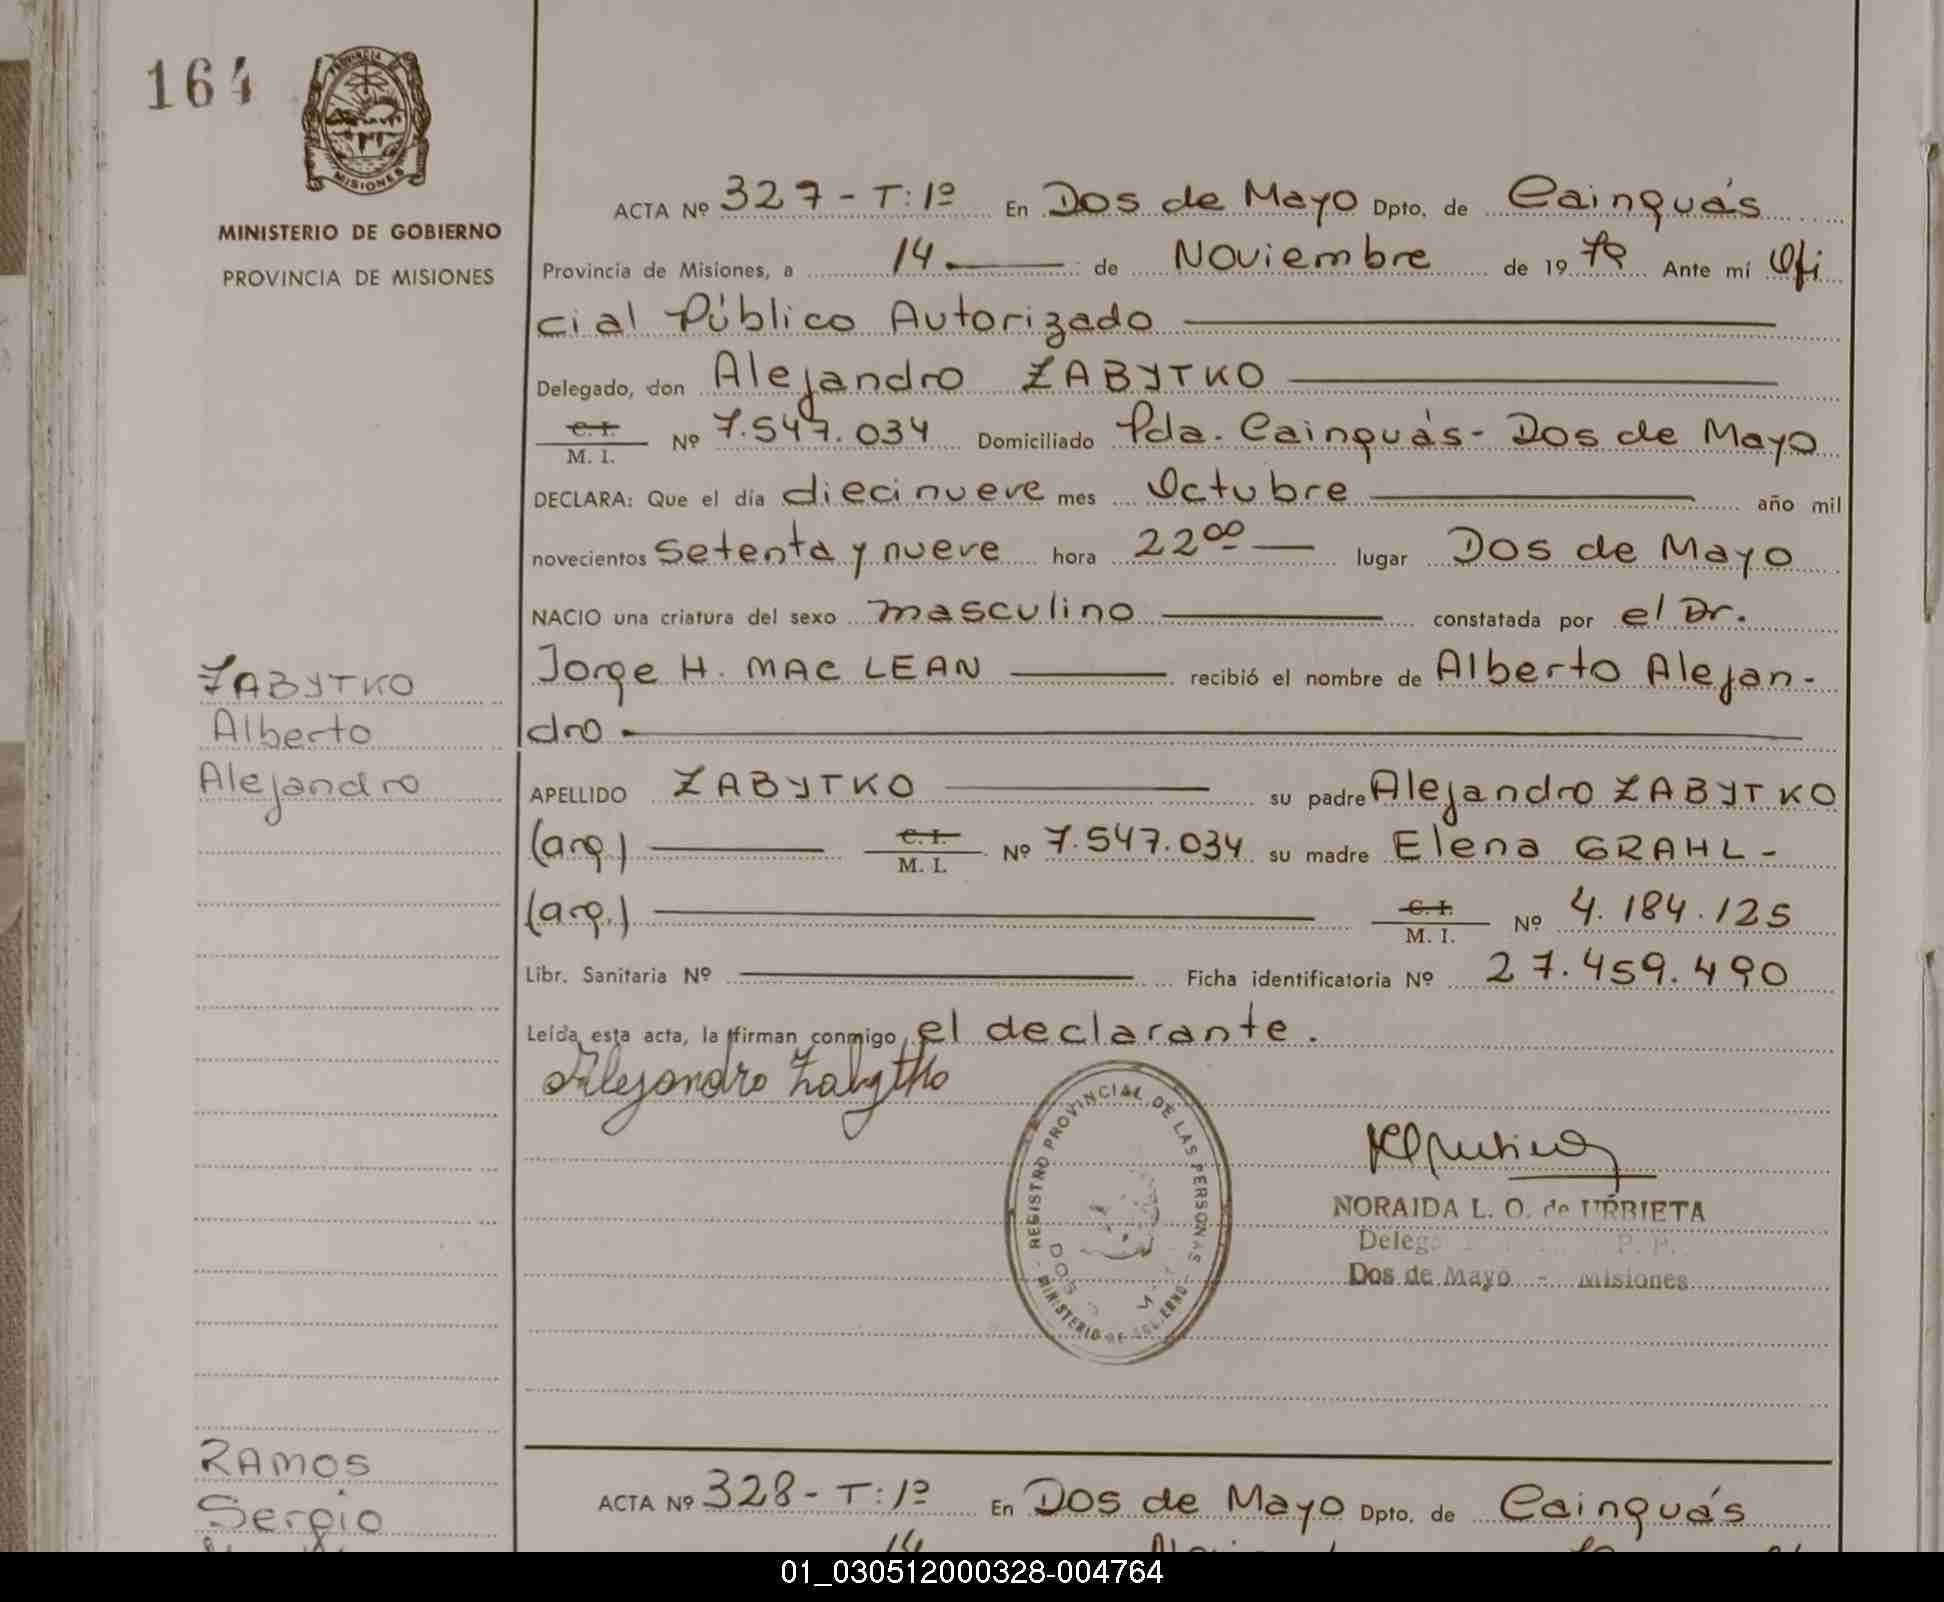 164
PROVINCIA DE
MISIONES
MINISTERIO DE GOBIERNO
PROVINCIA DE MISIONES
ACTA Nº 327 - T: 1º En Dos de Mayo Dpto. de Cainguás
Provincia de Misiones, a 14 de Noviembre de 1979 Ante mí Ofi
cial Público Autorizado
Delegado, don Alejandro ZABYTKO
C. I.
M. I. Nº 7.547.034 Domiciliado Pda. Cainguás - Dos de Mayo
DECLARA: Que el día diecinueve mes Octubre año mil
novecientos setenta y nueve hora 22⁰⁰ lugar Dos de Mayo
NACIO una criatura del sexo masculino constatada por el Dr.
Jorge H. MAC LEAN recibió el nombre de Alberto Alejan-
dro
ZABYTKO
Alberto
Alejandro
APELLIDO ZABYTKO su padre Alejandro ZABYTKO
(arg.) C. I.
M. I. Nº 7.547.034 su madre Elena GRAHL -
(arg.) C. I.
M. I. Nº 4.184.125
Libr. Sanitaria Nº Ficha identificatoria Nº 27.459.490
Leída esta acta, la firman conmigo, el declarante.
Alejandro Zabytko
REGISTRO PROVINCIAL DE LAS PERSONAS
MINISTERIO DE GOBIERNO
DOS
NORAIDA L. O. de URBIETA
Dos de Mayo - Misiones
RAMOS
Sergio
ACTA Nº 328 - T: 1º En Dos de Mayo Dpto. de Cainguás
14